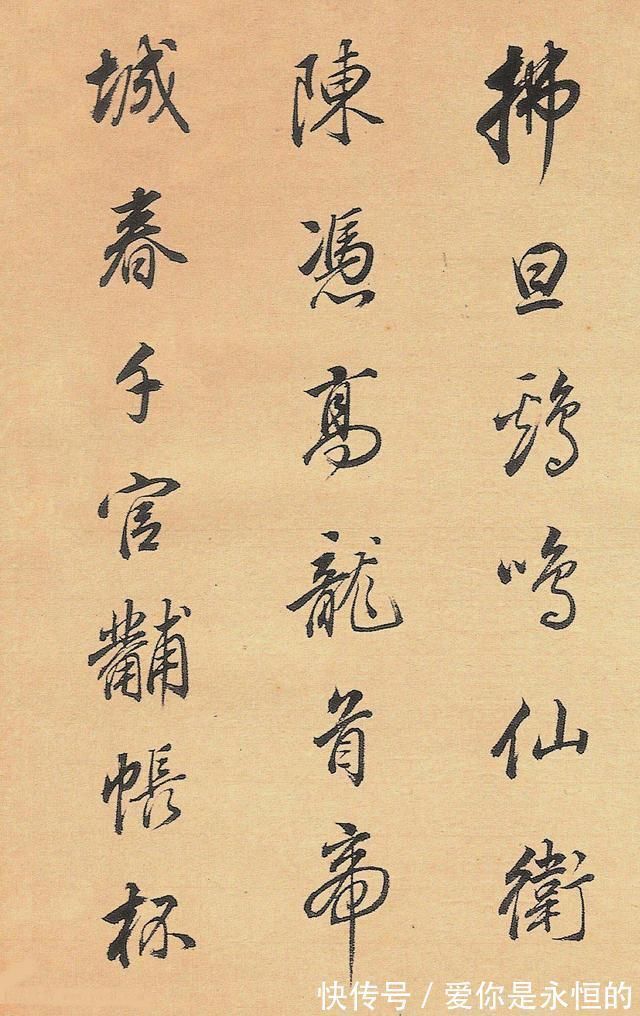 拂旦鷄鳴仙衛
陳憑高龍首帝
城春千官黼帳杯
快传号 / 爱你是永恒的